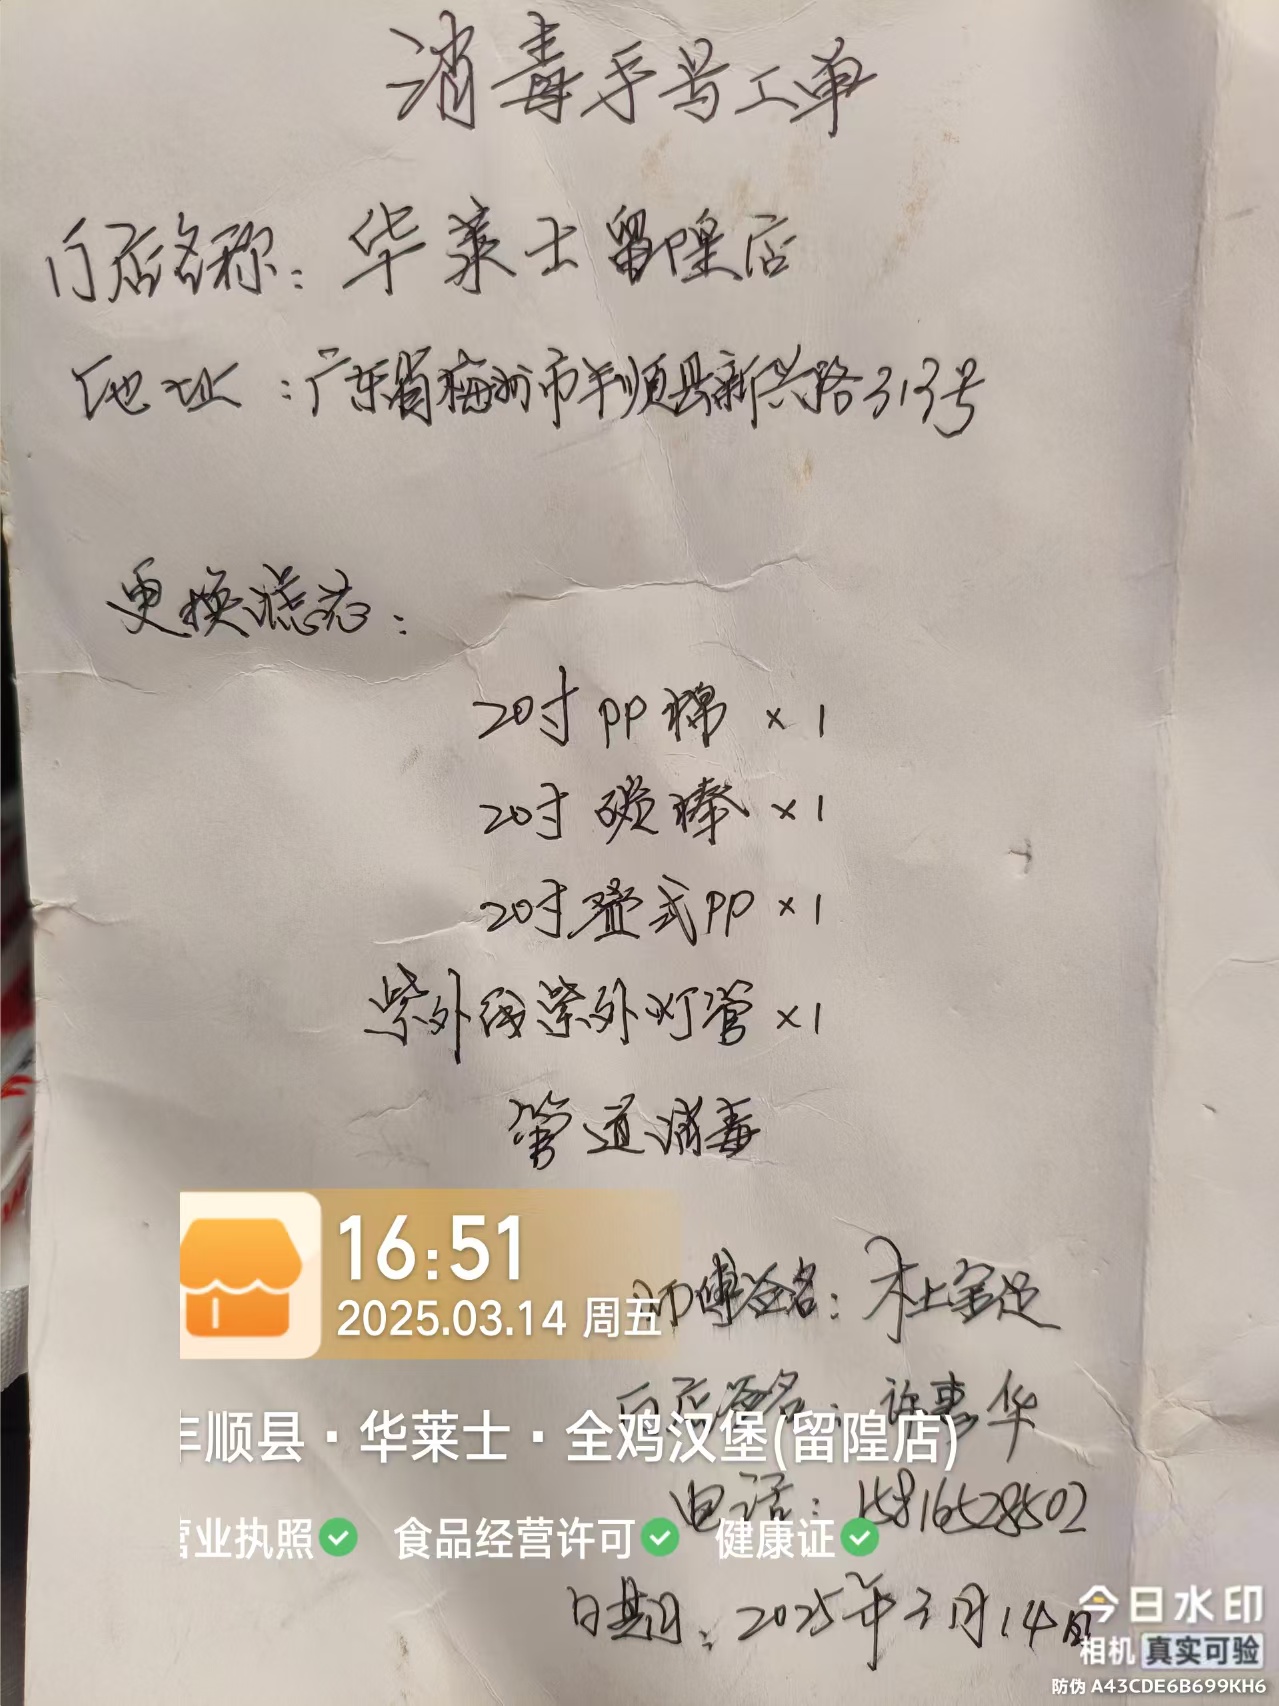 消毒手号工单
门店名称：华莱士留隍店
地址：广东省梅州市丰顺县新兴路313号
更换滤芯：
20寸PP棉 ×1
20寸碳棒 ×1
20寸叠式PP ×1
紫外线紫外灯管 ×1
管道消毒
16:51
2025.03.14 周五
师傅签名：杜
门店签名：许惠华
丰顺县·华莱士·全鸡汉堡(留隍店)
电话：15816528502
营业执照 食品经营许可 健康证
日期：2025年3月14日
今日水印
相机 真实可验
防伪 A43CDE6B699KH6